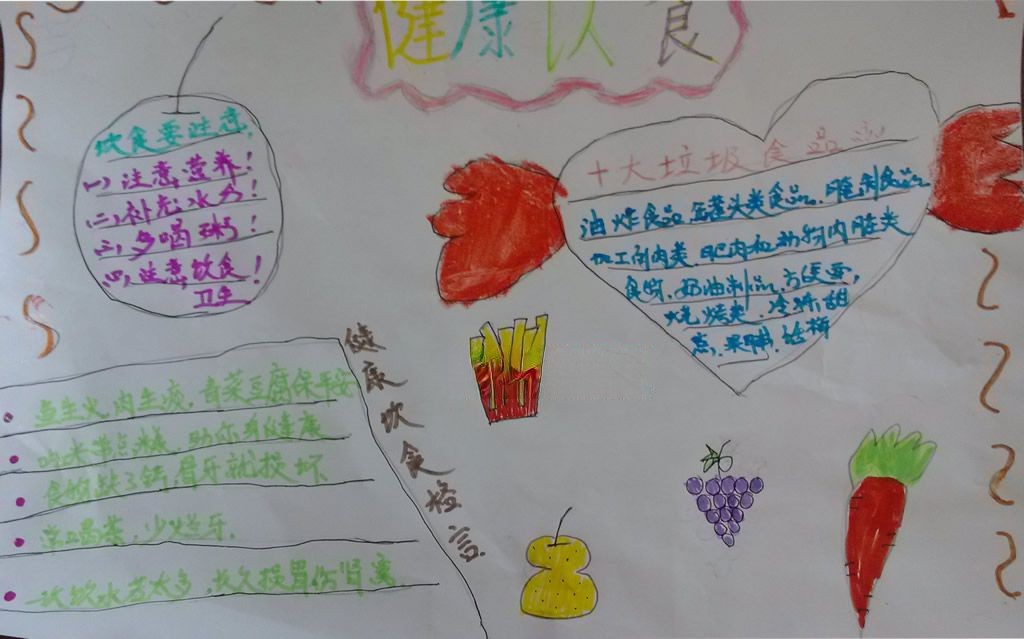 健康饮食
饮食要注意!
(一)注意营养!
(二)补充水分!
(三)多喝粥!
(四)注意饮食!
卫生
十大垃圾食品
油炸食品、罐头类食品、腌制食品
加工的肉类、肥肉和动物内脏类
食物、奶油制品、方便面,
烧烤类、冷冻甜
点,果脯、话梅
健康饮食格言
鱼生火,肉生痰,青菜豆腐保平安
吃米带点糠,助你身健康
食物缺了钙,眉牙就损坏
常喝茶,少烂牙。
一次饮水若太多,长久损胃伤肾囊